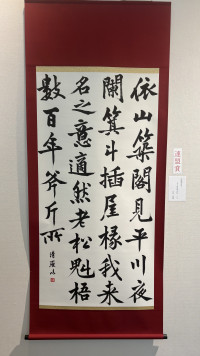 依山築閣見平川夜
闌箕斗插屋椽我来
名之意適然老松魁梧
數百年斧斤所
連盟賞